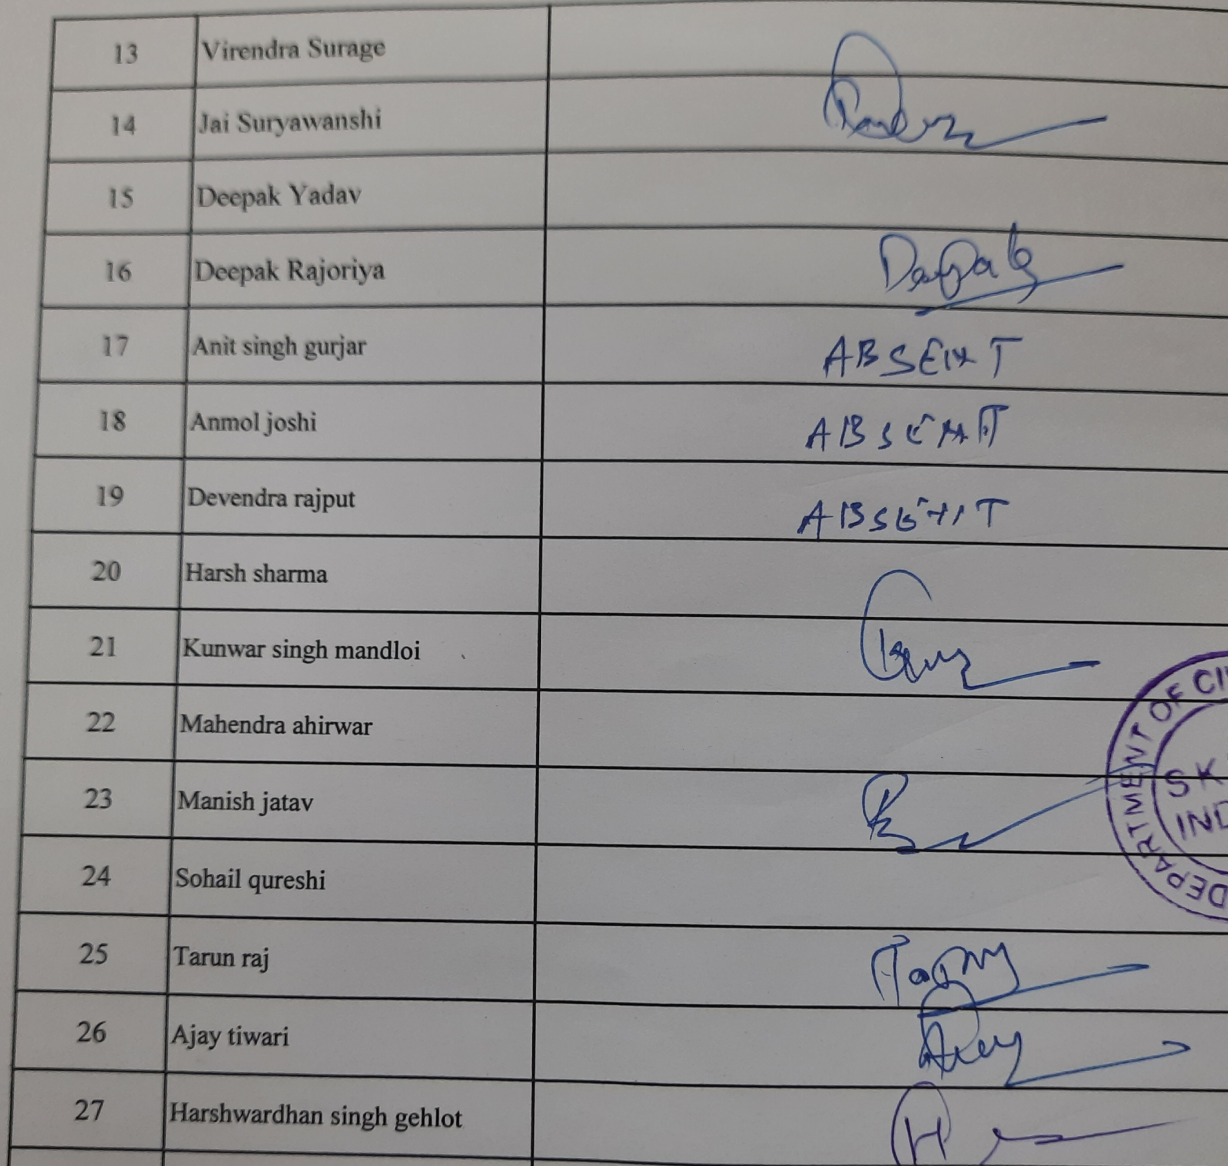 13 Virendra Surage
14 Jai Suryawanshi
15 Deepak Yadav
16 Deepak Rajoriya Deepak
17 Anit singh gurjar ABSENT
18 Anmol joshi ABSENT
19 Devendra rajput ABSENT
20 Harsh sharma
21 Kunwar singh mandloi
22 Mahendra ahirwar
23 Manish jatav
24 Sohail qureshi
25 Tarun raj
26 Ajay tiwari
27 Harshwardhan singh gehlot H
DEPARTMENT OF CI
SK
IND